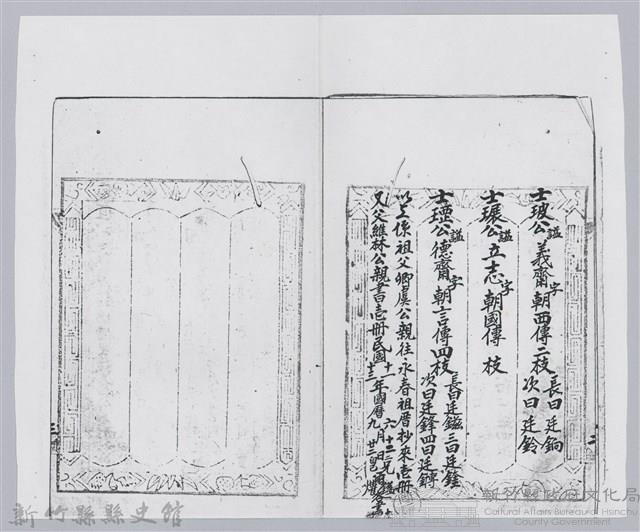 士玻公諡義齋字朝西傳二枝長曰廷鋦次曰廷鈴
士㻏公諡立志字朝國傳 枝
士瑽公諡德齋字朝言傳四枝長曰廷鎰三曰廷鍂次曰廷鋒四曰廷鏄
以上係祖父卿虞公親往永春祖厝抄來壹冊
又父維林公親書壹冊民國
年國曆九月
新竹縣縣史館
新竹縣政府文化局
Cultural Affairs Bureau of Hsinchu
County Government